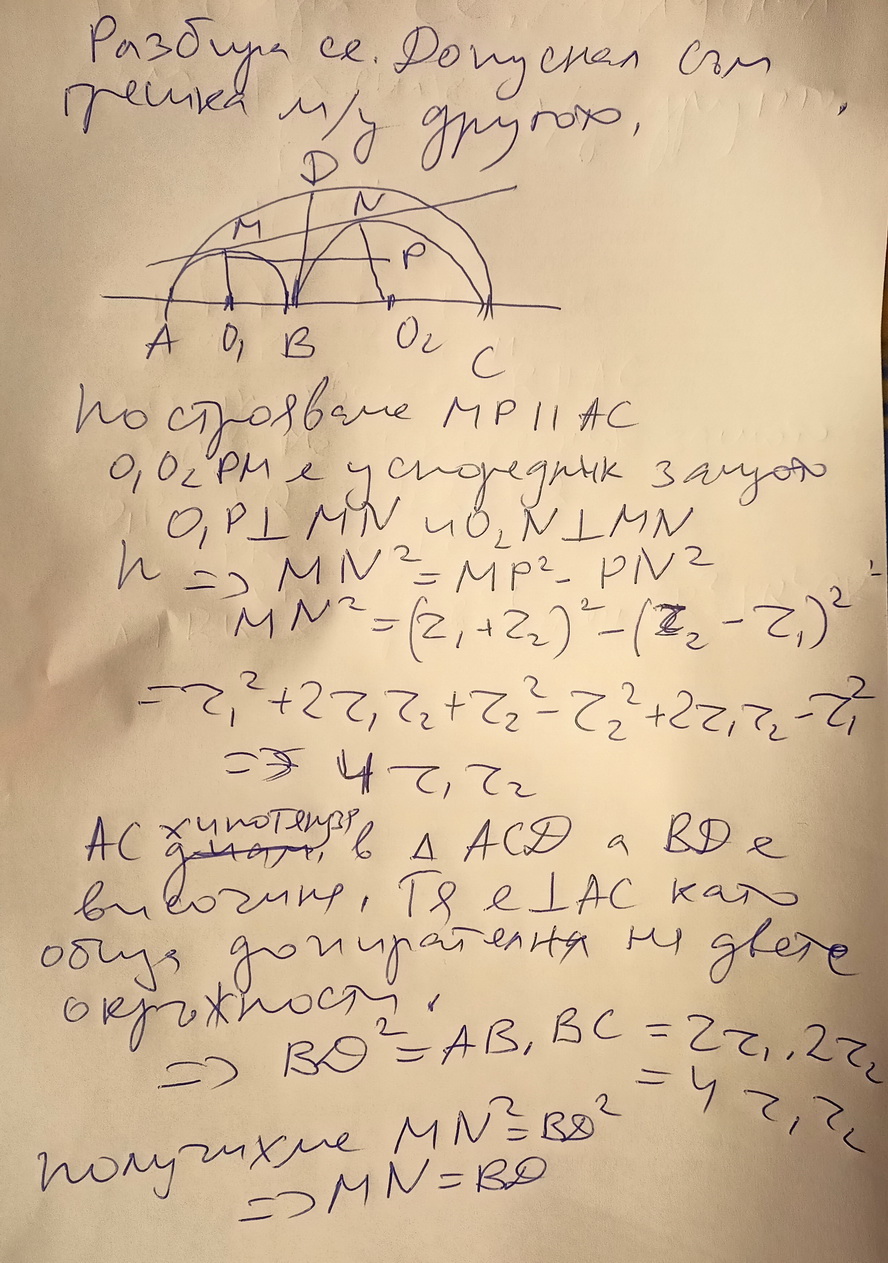 Разбира се. Допуснал съм
грешка м/у другото,
D
M
N
P
A O₁ B O₂ C
Построяваме MP || AC
O₁O₂PM е успоредник защото
O₁P⊥MN и O₂N⊥MN
=> MN² = MP² - PN²
MN² = (r₁+r₂)² - (r₂ - r₁)²
= r₁² + 2r₁r₂ + r₂² - r₂² + 2r₁r₂ - r₁²
=> 4 r₁r₂
AC хипотенуза в Δ ACD а BD е
височина. Тя е ⊥AC като
обща допирателна на двете
окръжности.
=> BD² = AB.BC = 2r₁.2r₂
= 4 r₁r₂
Получихме MN² = BD²
=> MN = BD